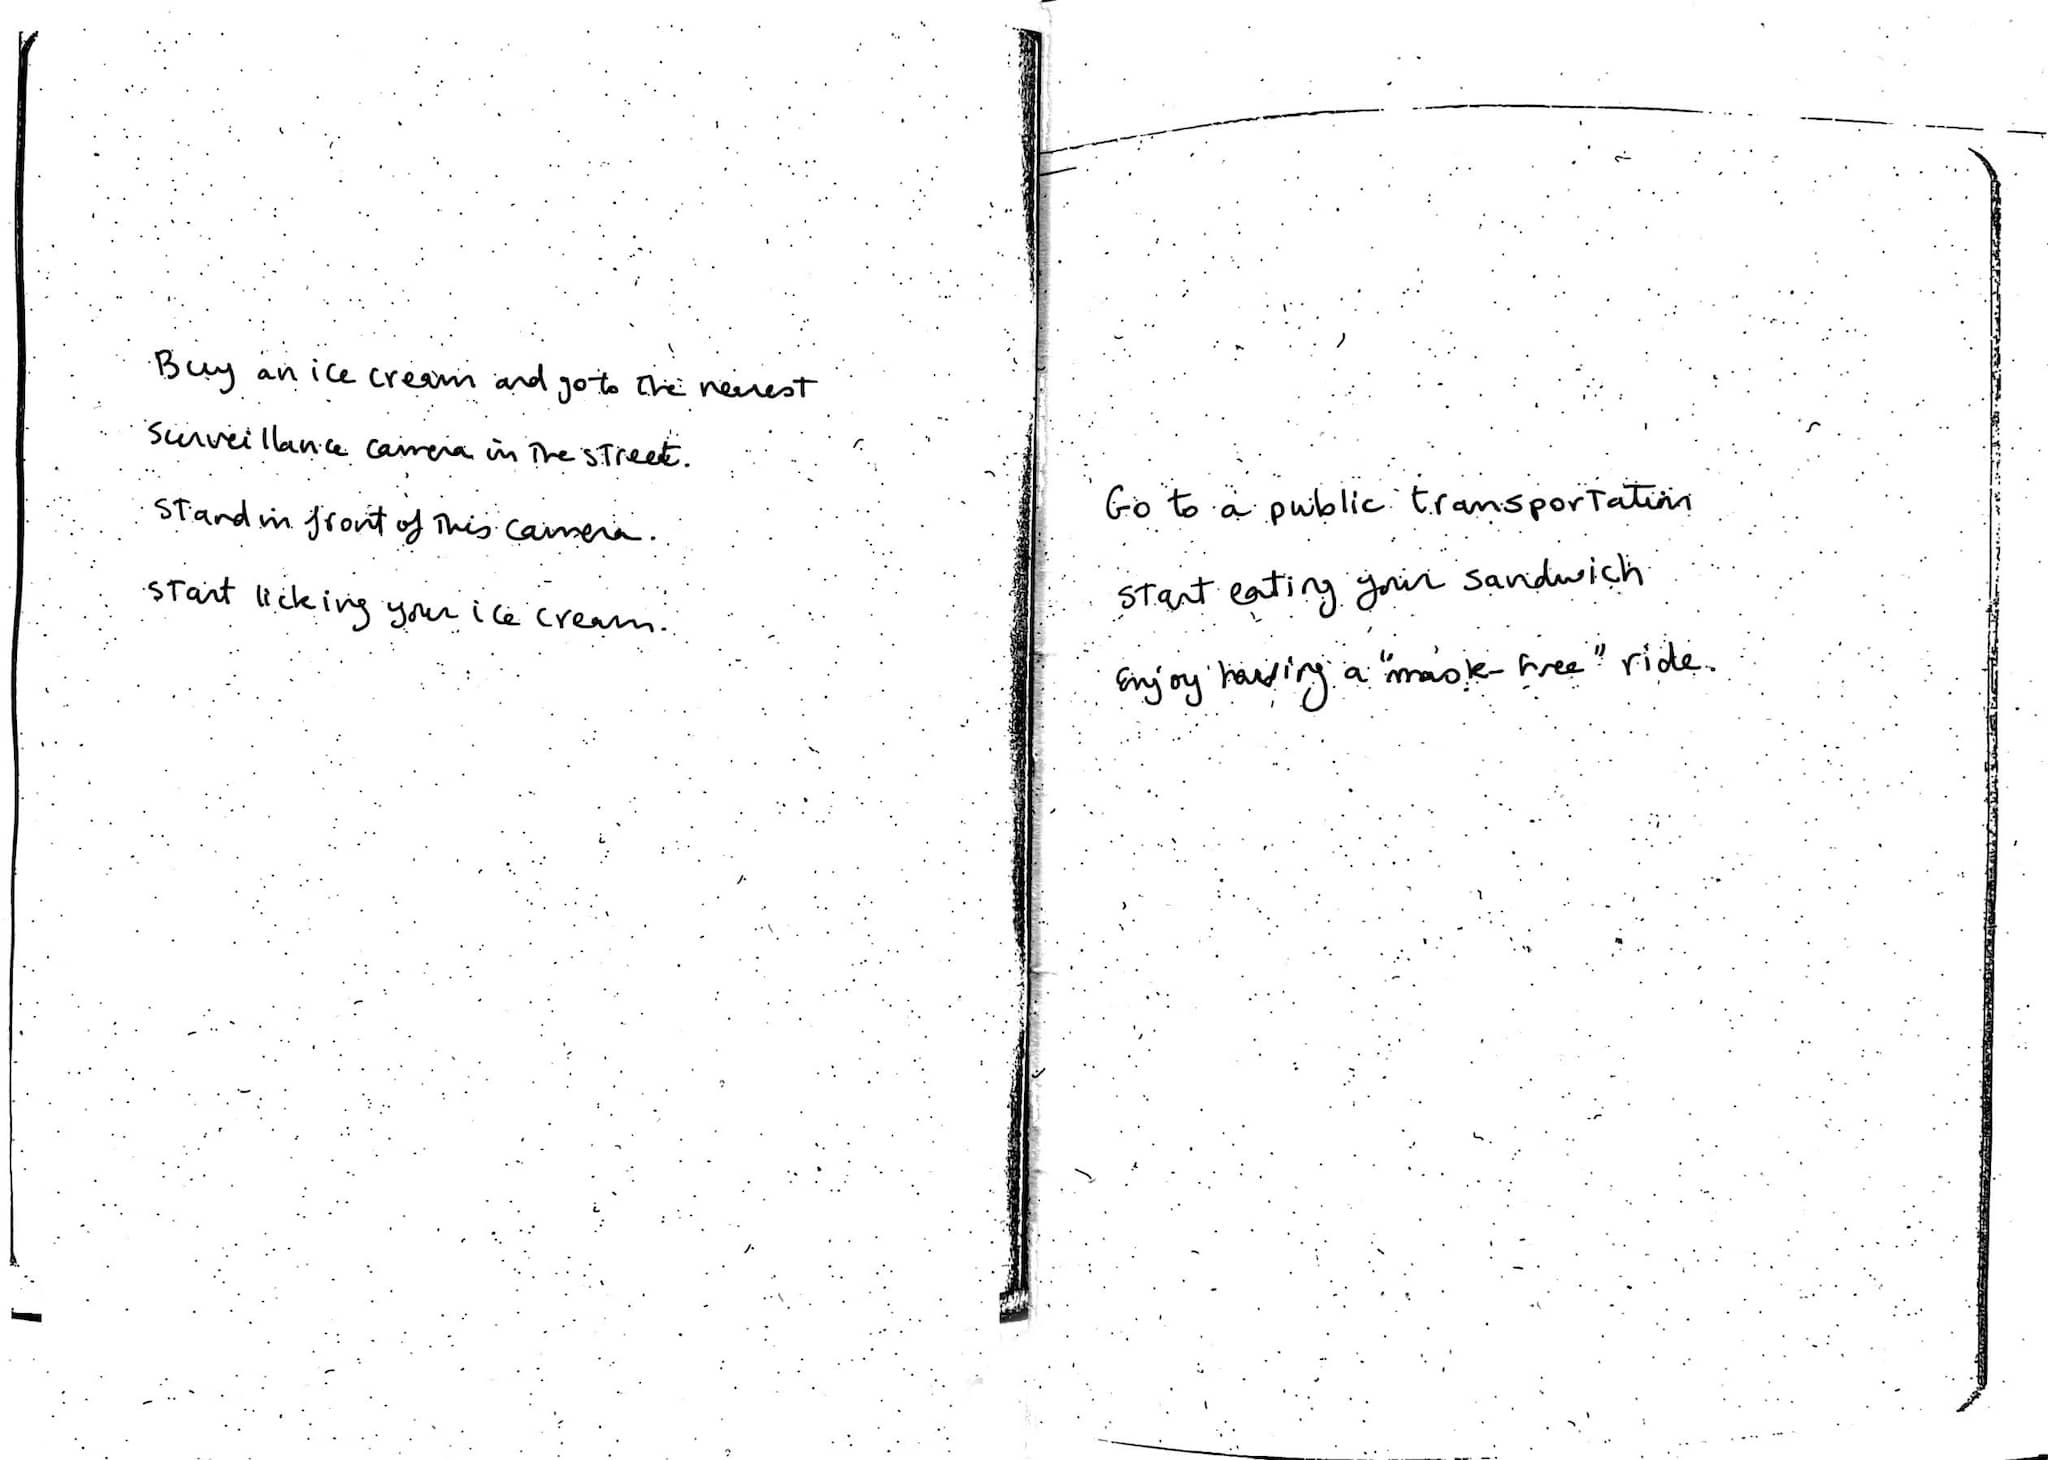 Buy an ice cream and go to the nearest
surveillance camera in the street.
Stand in front of this camera.
Start licking your ice cream.
Go to a public transportation
start eating your sandwich
Enjoy having a "mask-free" ride.